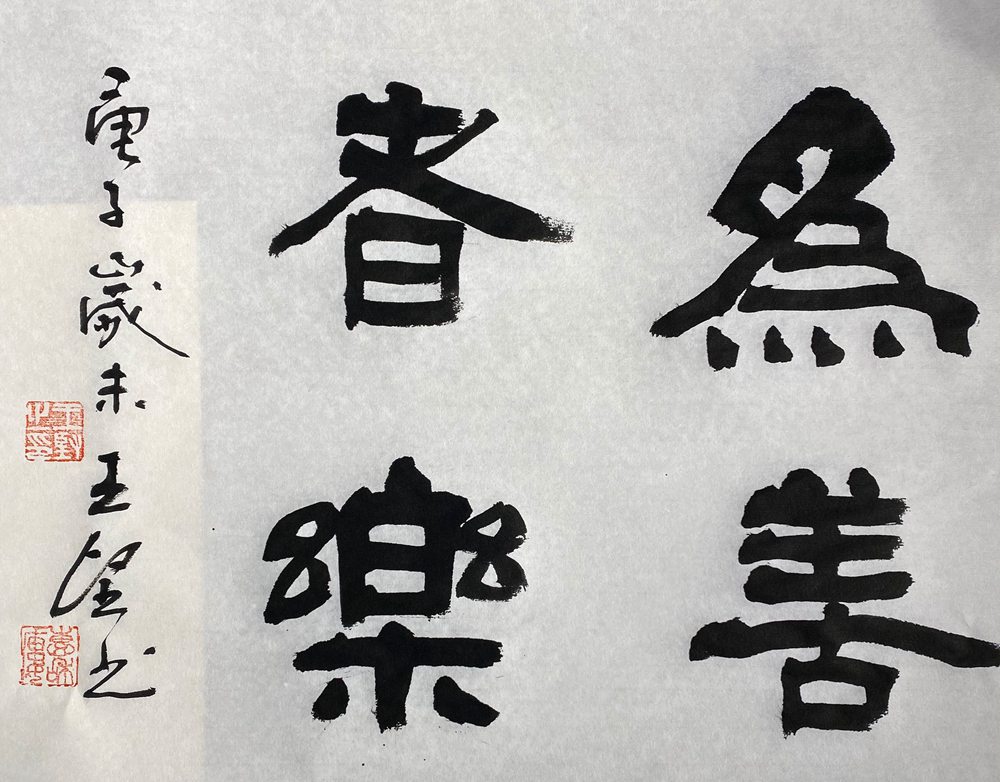 為善
者樂
庚子歲末王堅書